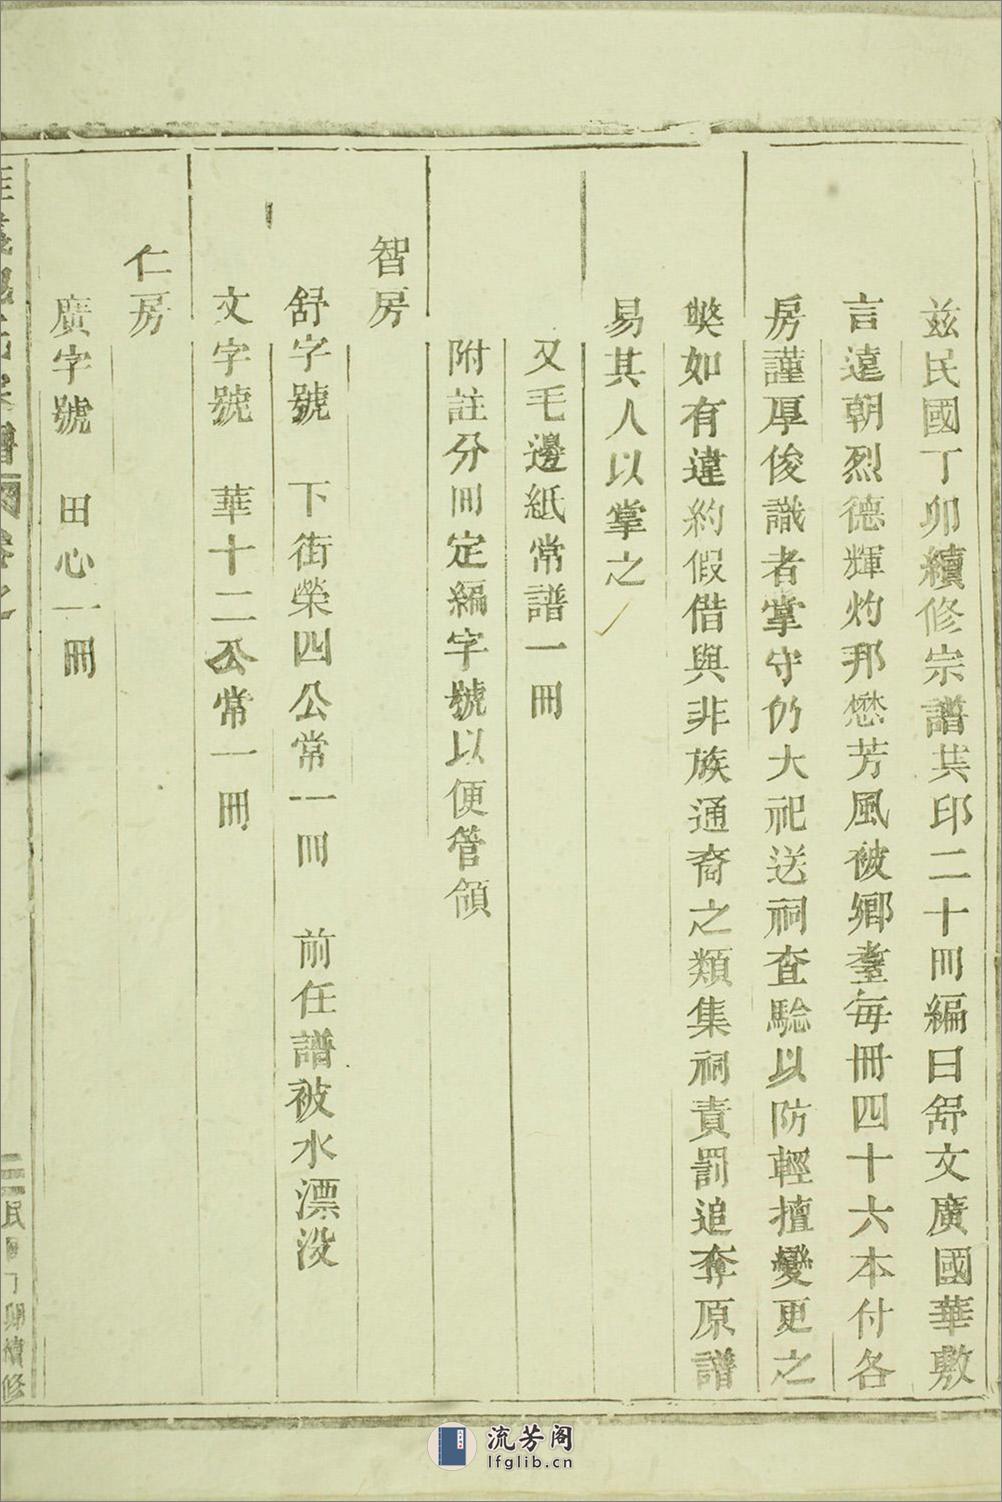 茲民國丁卯續修宗譜共印二十冊編曰舒文廣國華敷
言遠朝烈德輝灼那懋芳風被鄉臺每冊四十六本付各
房謹厚俊識者掌守仍大祀送祠查驗以防輕擅變更之
獘如有違約假借與非族通裔之類集祠責罰追奪原譜
易其人以掌之
又毛邊紙常譜一冊
附註分冊定編字號以便管領
智房
舒字號 下街榮四公常一冊 前任譜被水漂没
文字號 華十二公常一冊
仁房
廣字號 田心一冊
氏 譜 卷之
二 民國丁卯續修
流芳阁
lfglib.cn